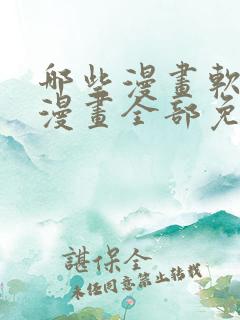 哪些漫畫軟
漫畫全部免
諶保全
未任同意禁止转载